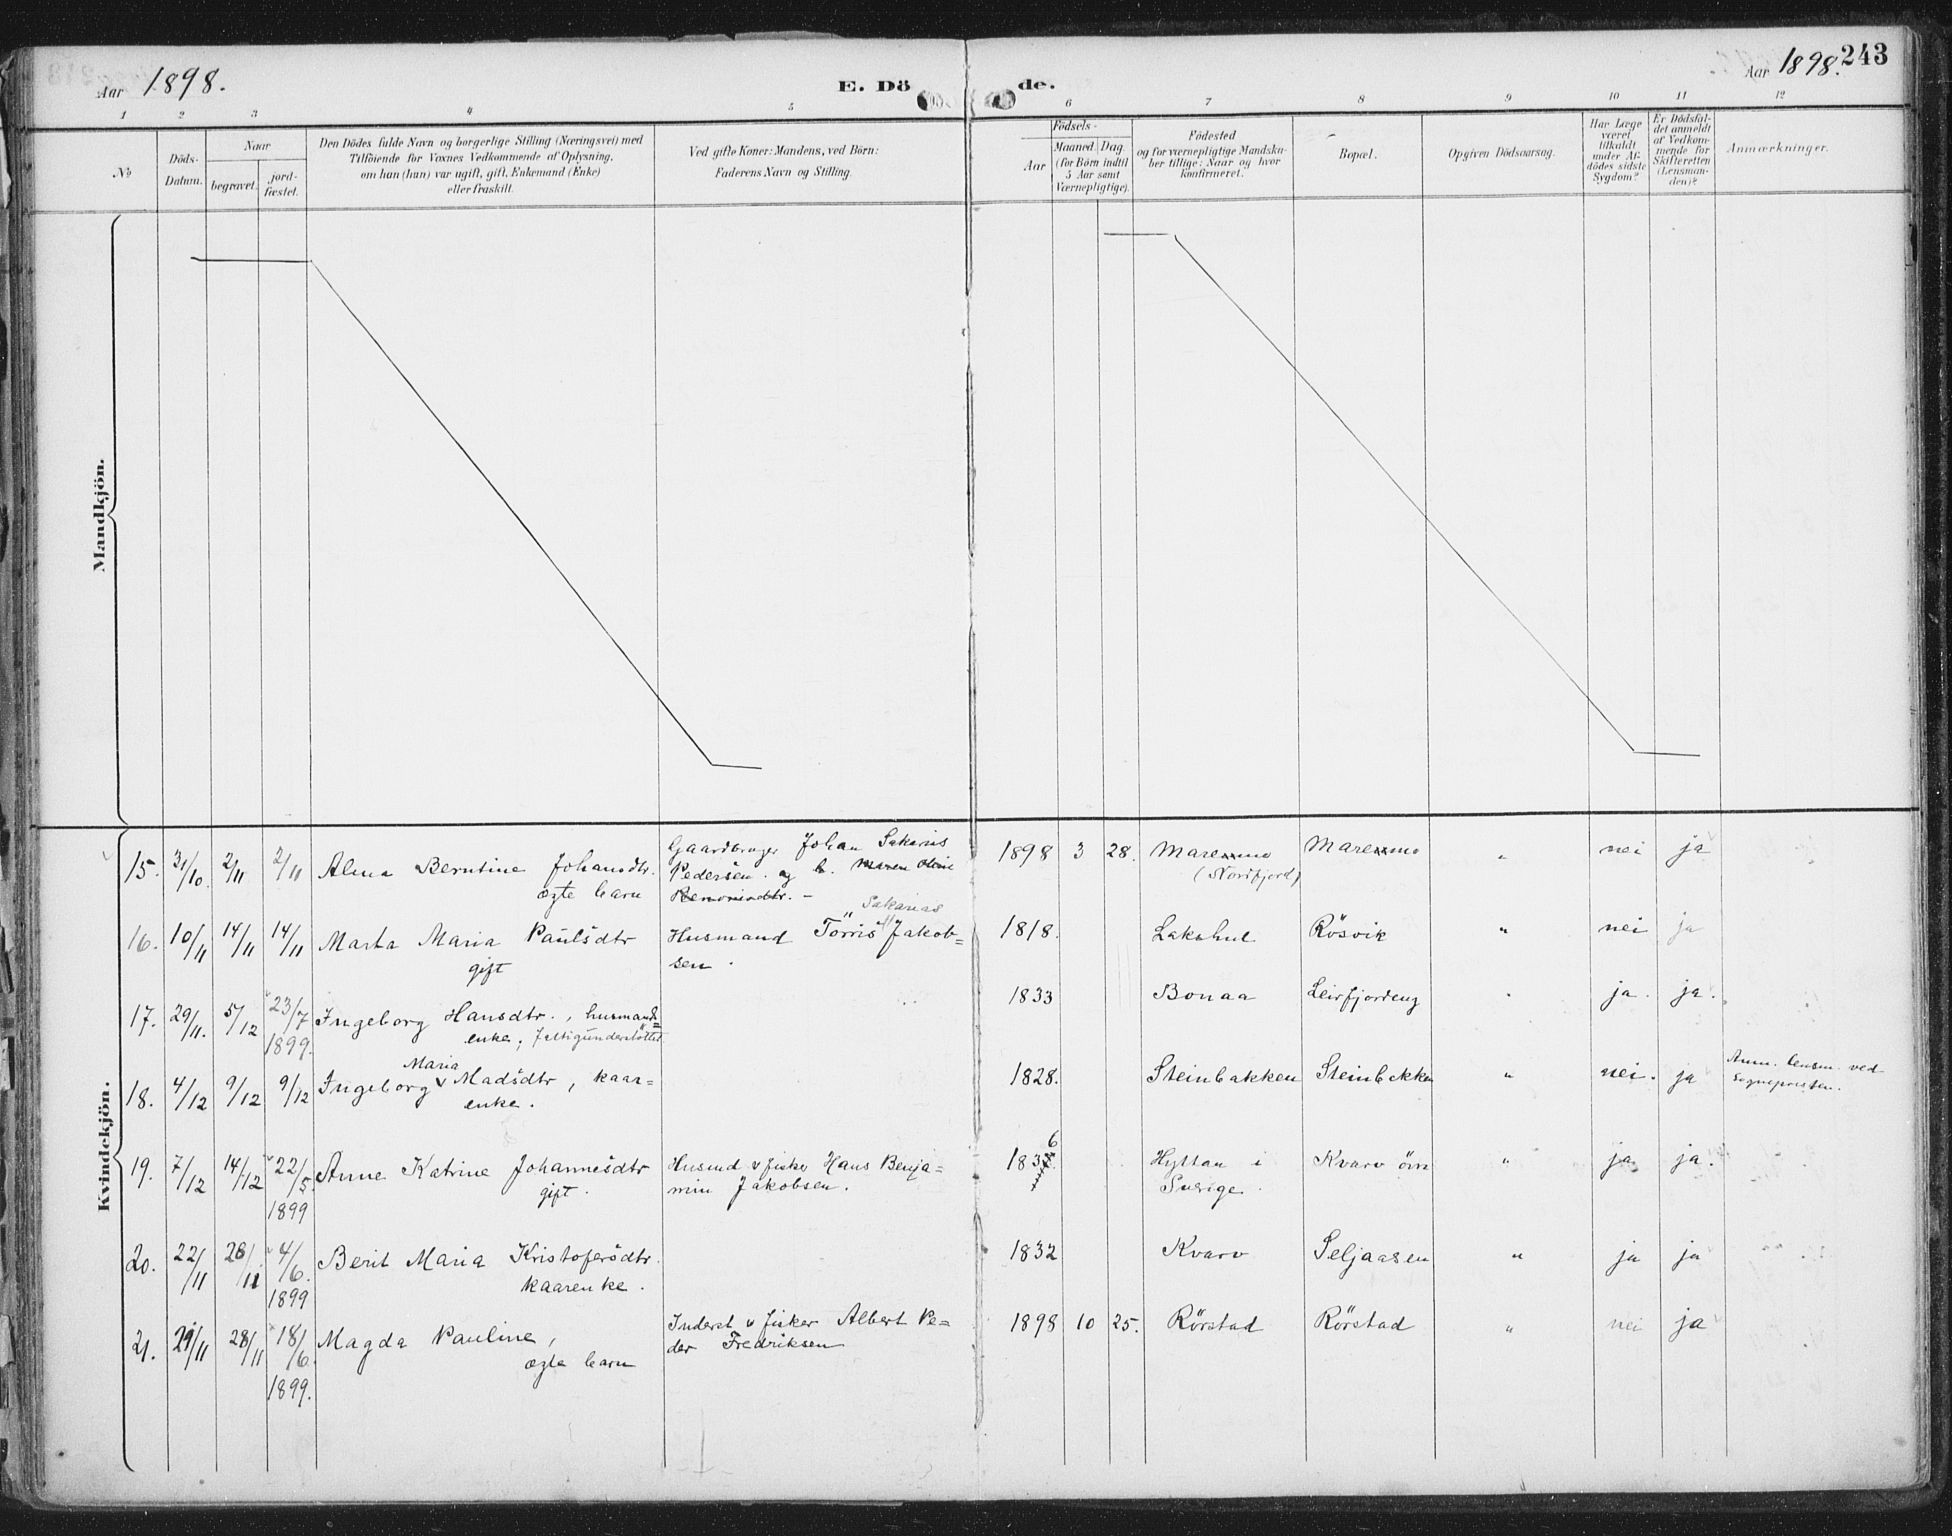 Aar 1898.
E. Dö de.
Aar 1898.
243
1 2 3 4 5 6 7 8 9 10 11 12
№
Döds-
Datum.
Naar
begravet.
jord-
fæstet.
Den Dödes fulde Navn og borgerlige Stilling (Næringsvei) med
Tilföiende for Voxnes Vedkommende af Oplysning,
om han (hun) var ugift, gift, Enkemand (Enke)
eller fraskilt.
Ved gifte Koner: Mandens, ved Börn:
Faderens Navn og Stilling.
Födsels-
Aar
Maaned. Dag.
(for Börn indtil
5 Aar samt
Værnepligtige).
Födested
og for værnepligtige Mandska-
ber tillige: Naar og hvor
konfirmeret.
Bopæl.
Opgiven Dödsaarsag.
Har Læge
været
tilkaldt
under Af-
dödes sidste
Sygdom?
Er Dödsfal-
det anmeldt
af Vedkom-
mende for
Skifteretten
(Lensman-
den)?
Anmærkninger.
Mandkjön.
Kvindekjön.
15. 31/10. 2/11 2/11 Alma Berntine Johansdtr. Gaardbruger Johan Sakarias 1898 3 28. Maremmo Maremmo " nei ja
ægte barn Pedersen. og h. Maren Oline (Nordfjord)
Sakarias
16. 10/11 14/11 14/11 Marta Maria Paulsdtr Husmand Törris Jakob= 1818. Lakshul Rösvik " nei ja
gift sen.
17. 29/11. 5/12 23/7 Ingeborg Hansdtr., husmands= 1833 Bonaa Leirfjordeng " ja. ja.
1899. enke, fattigunderstöttet
Maria
18. 4/12 9/12 9/12 Ingeborg v Madsdtr, kaar= 1828. Steinbakken Steinbakken " nei. ja Anm. lensm. ved
enke. Sognepresten.
19. 7/12 14/12 22/5. Anne Katrine Johannesdtr Husmd v fisker Hans Benja= 1836 Hyttan i Kvarv övre " ja ja.
1899 gift. min Jakobsen. Sverige.
20. 22/11 28/11 4/6. Berit Maria Kristofersdtr. 1832 Kvarv Seljaasen " ja ja
1899 kaarenke.
21. 29/11 28/11 18/6. Magda Pauline, Inderst v fisker Albert Pe= 1898 10 25. Rörstad Rörstad " nei ja
1899. ægte barn der Fredriksen